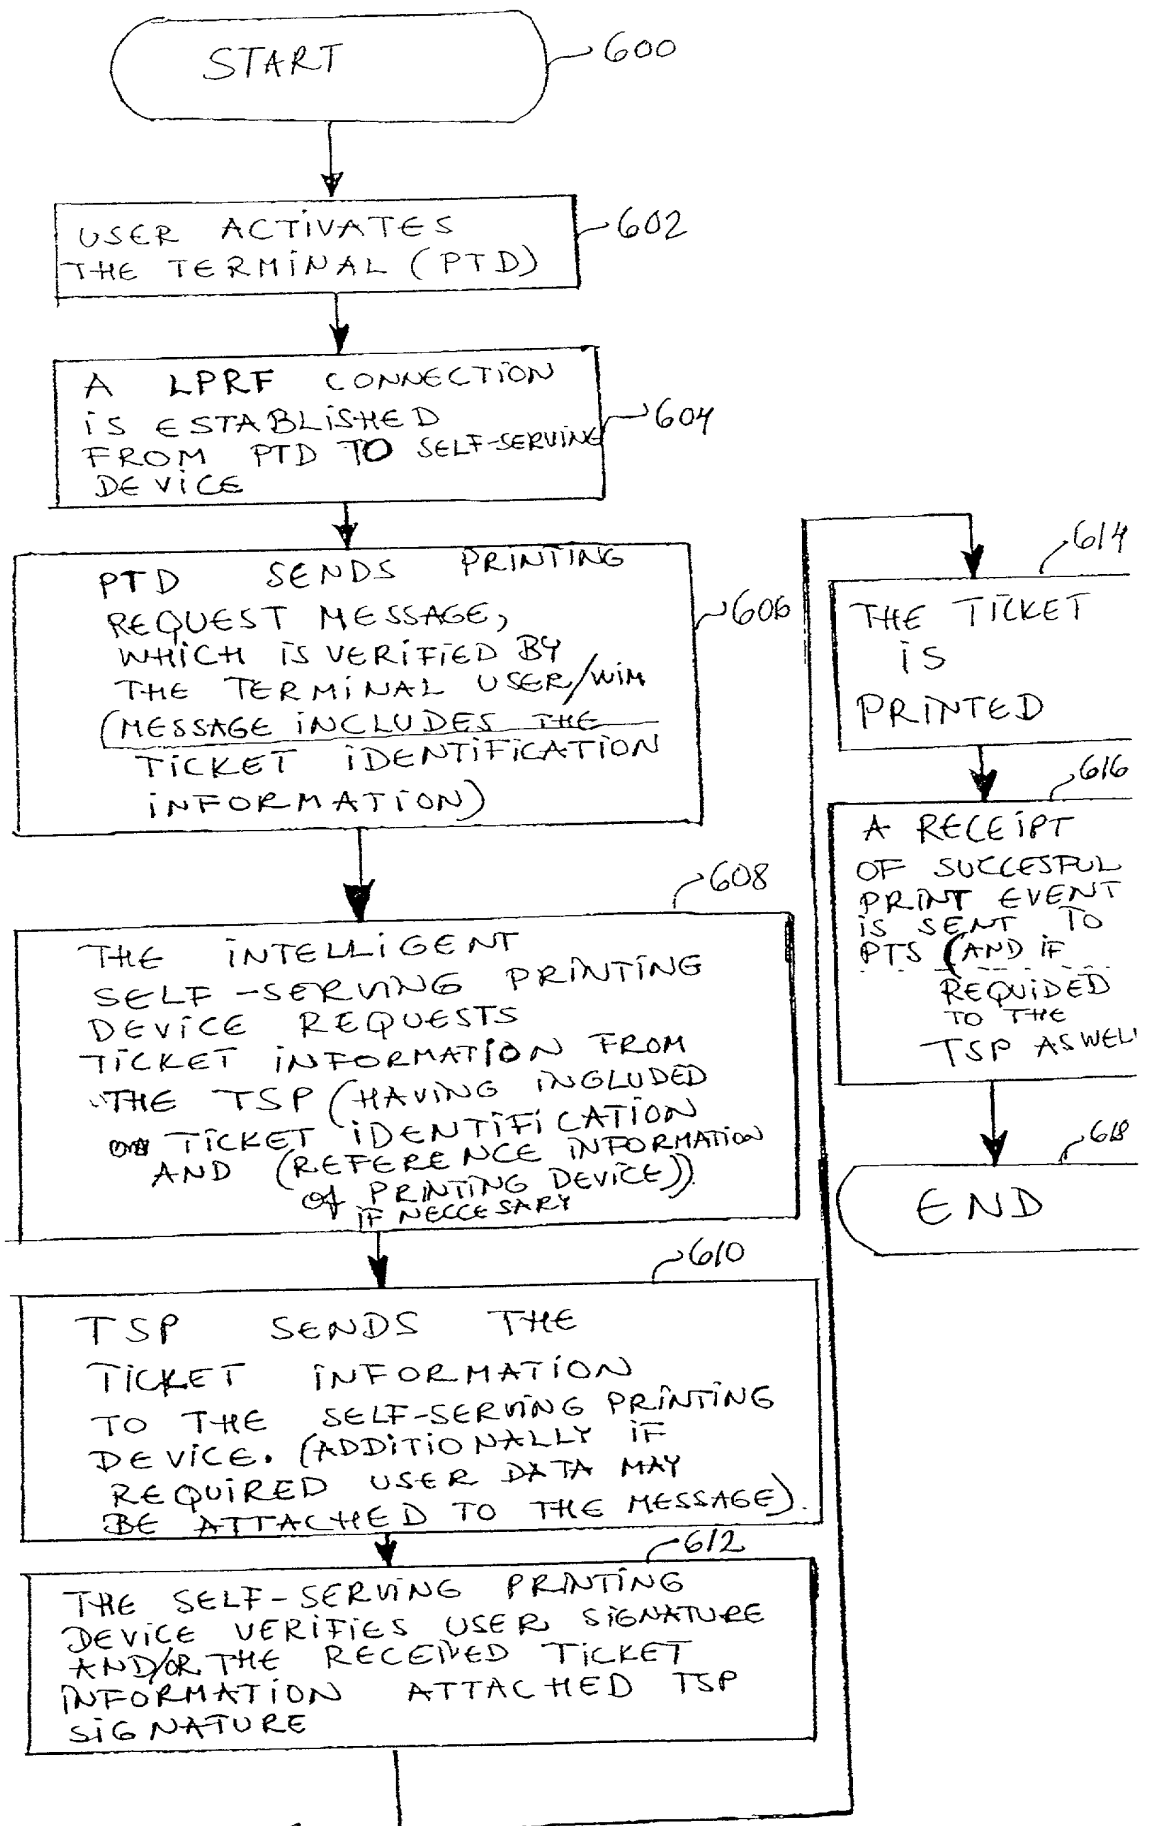 START
600
USER ACTIVATES
THE TERMINAL (PTD)
602
A LPRF CONNECTION
IS ESTABLISHED
FROM PTD TO SELF-SERVING
DEVICE
604
PTD SENDS PRINTING
REQUEST MESSAGE,
WHICH IS VERIFIED BY
THE TERMINAL USER/WIM
(MESSAGE INCLUDES THE
TICKET IDENTIFICATION
INFORMATION)
606
608
THE INTELLIGENT
SELF-SERVING PRINTING
DEVICE REQUESTS
TICKET INFORMATION FROM
THE TSP (HAVING INGLUDED
TICKET IDENTIFICATION
AND (REFERENCE INFORMATION
of PRINTING DEVICE))
IF NECCESARY
610
TSP SENDS THE
TICKET INFORMATION
TO THE SELF-SERVING PRINTING
DEVICE. (ADDITIONALLY IF
REQUIRED USER DATA MAY
BE ATTACHED TO THE MESSAGE).
612
THE SELF-SERVING PRINTING
DEVICE VERIFIES USER SIGNATURE
AND/OR THE RECEIVED TICKET
INFORMATION ATTACHED TSP
SIGNATURE
614
THE TICKET
IS
PRINTED
616
A RECEIPT
OF SUCCESFUL
PRINT EVENT
IS SENT TO
PTS (AND IF
REQUIDED
TO THE
TSP ASWELL
618
END